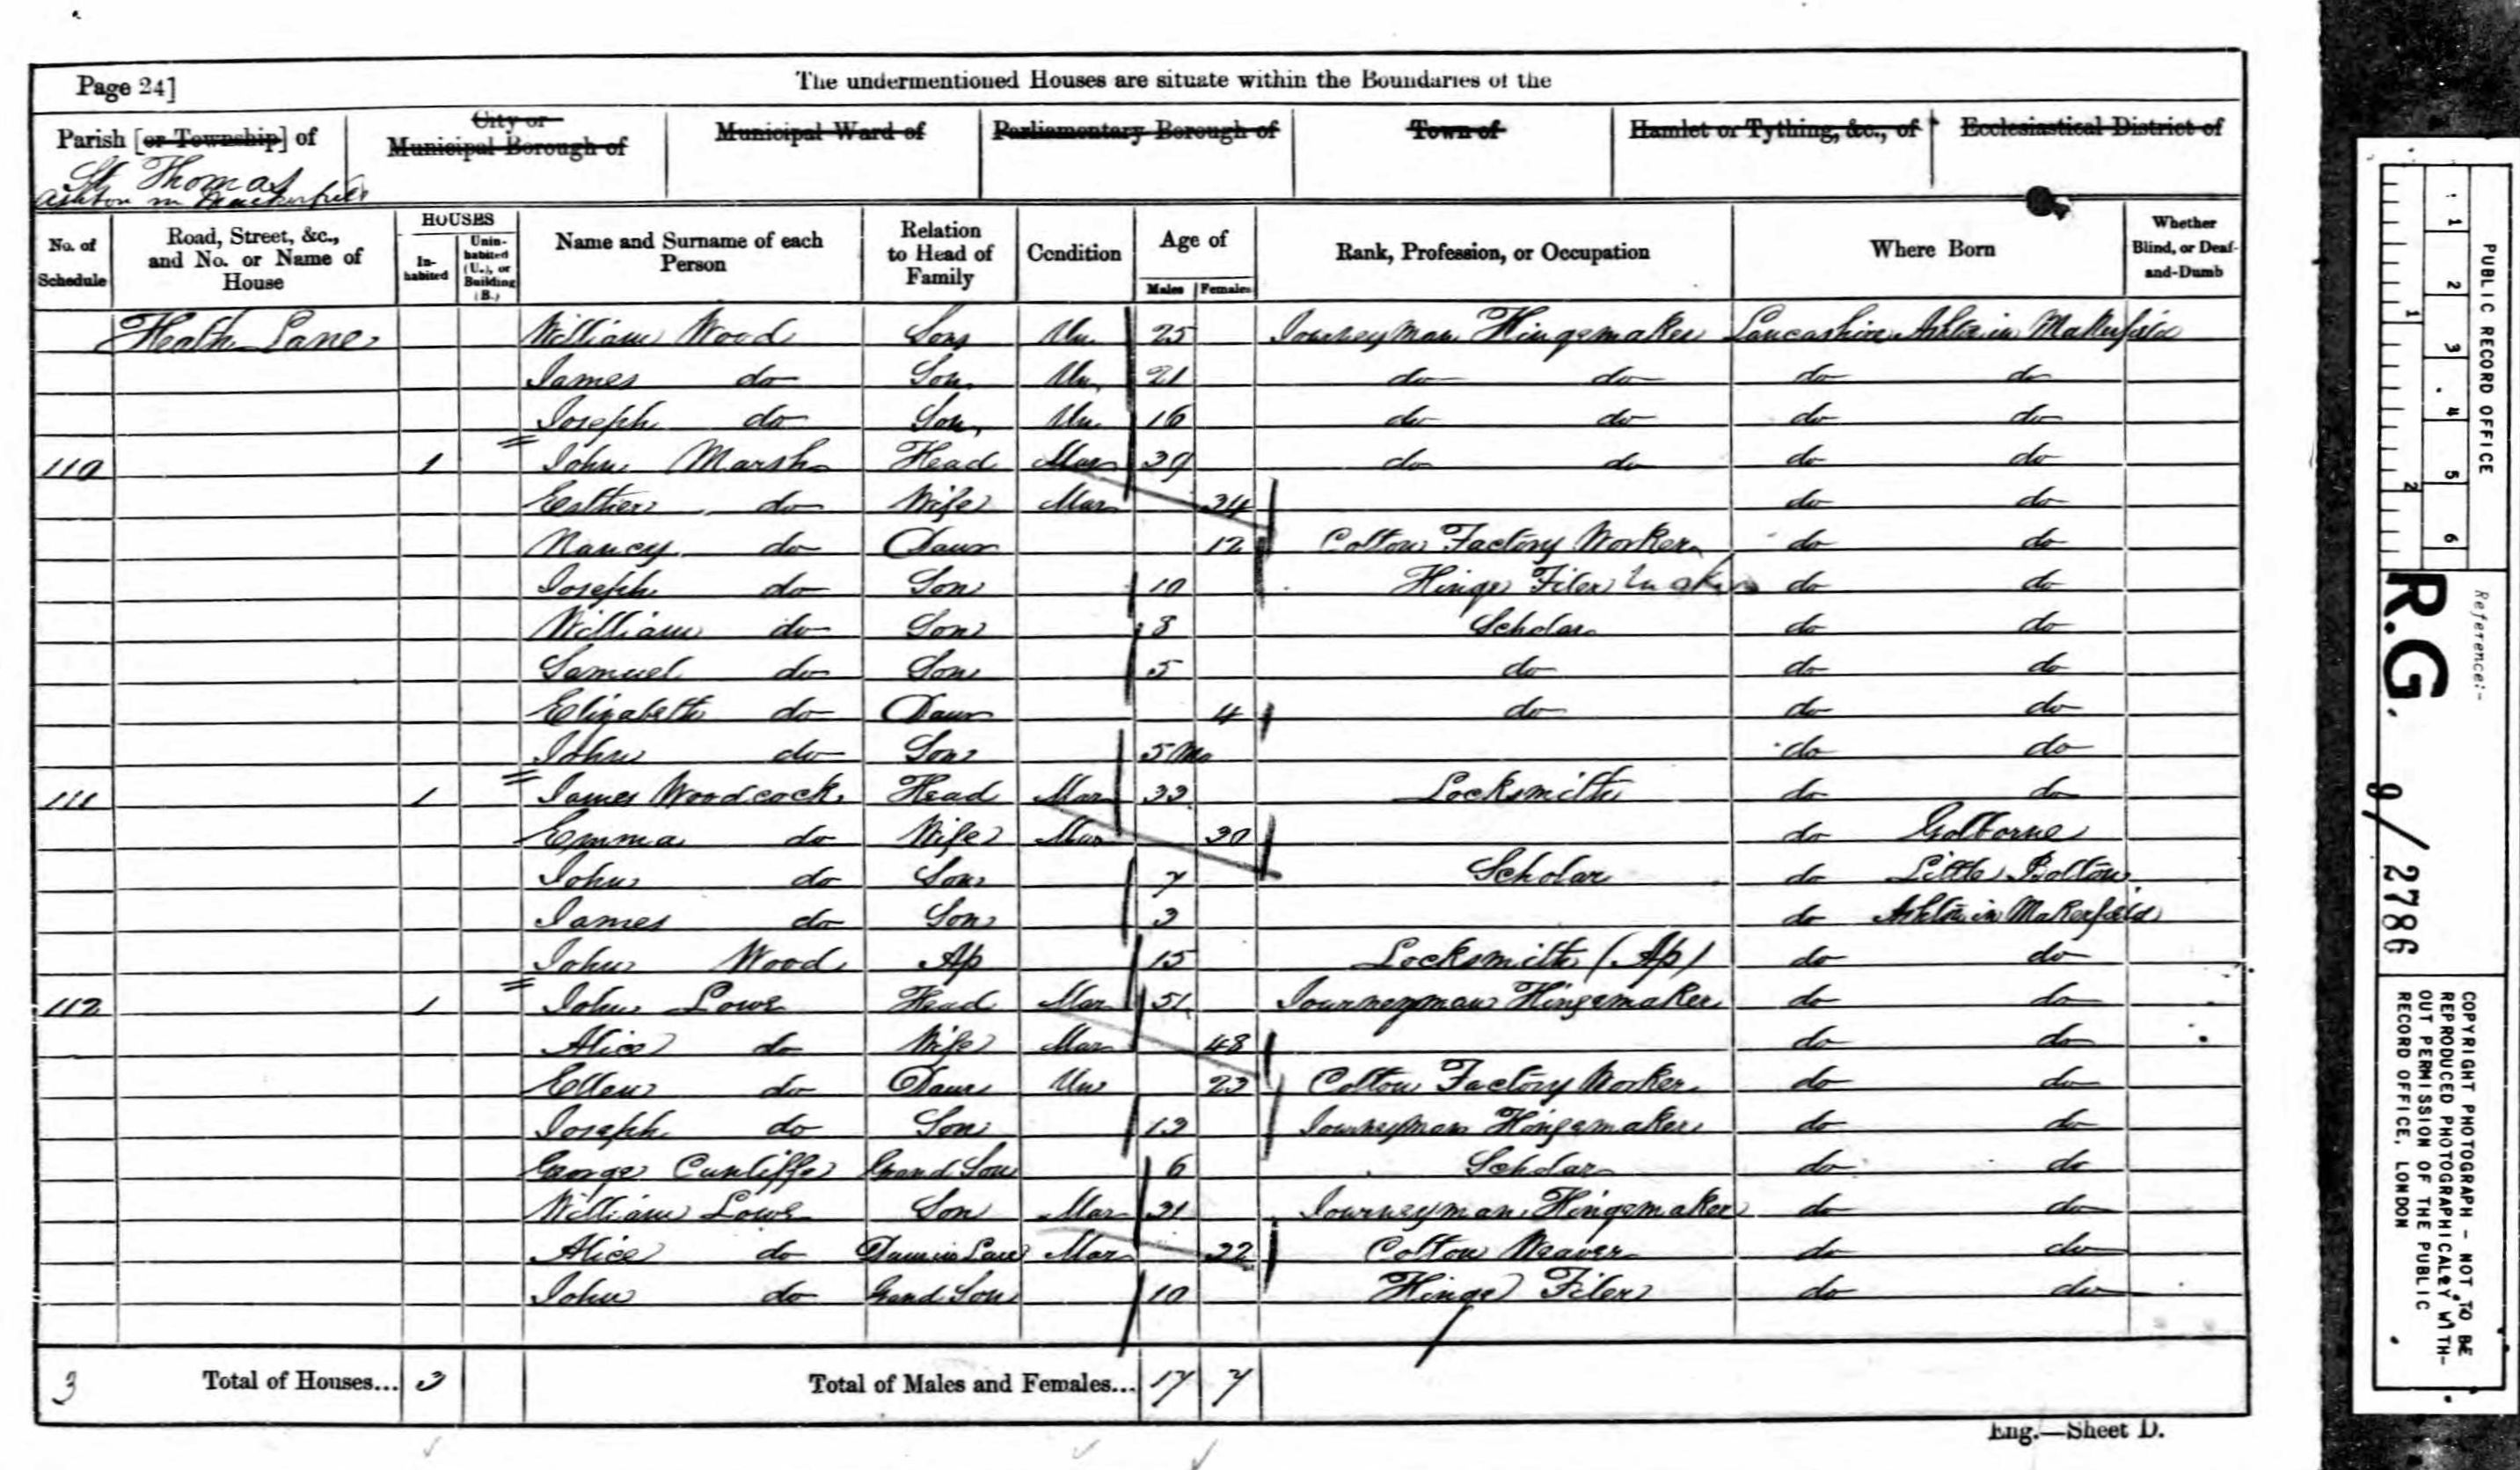 Page 24]
The undermentioned Houses are situate within the Boundaries of the
Parish [or Township] of
City or Municipal Borough of
Municipal Ward of
Parliamentary Borough of
Town of
Hamlet or Tything, &c., of
Ecclesiastical District of
St Thomas
Ashton in Mackerfield
No. of Schedule
Road, Street, &c., and No. or Name of House
HOUSES
In-habited
Unin-habited (U.), or Building (B.)
Name and Surname of each Person
Relation to Head of Family
Condition
Age of
Males
Females
Rank, Profession, or Occupation
Where Born
Whether Blind, or Deaf-and-Dumb
Heath Lane William Wood Son Un 25 Journeyman Hingemaker Lancashire Ashton in Makerfield
James do Son Un 21 do do do do
Joseph do Son Un 16 do do do do
110 1 John Marsh Head Mar 39 do do do do
Esther do Wife Mar 34 do do
Nancy do Daur 12 Cotton Factory Worker do do
Joseph do Son 10 Hinge Filer do do
William do Son 8 Scholar do do
Samuel do Son 5 do do do
Elizabeth do Daur 4 do do do
John do Son 5 Mo do do
111 1 James Woodcock Head Mar 33 Locksmith do do
Emma do Wife Mar 30 do Golborne
John do Son 7 Scholar do Little Bolton
James do Son 3 do Ashton in Makerfield
John Wood Ap 15 Locksmith (Ap) do do
112 1 John Lowe Head Mar 51 Journeyman Hingemaker do do
Alice do Wife Mar 48 do do
Ellen do Daur Un 23 Cotton Factory Worker do do
Joseph do Son 13 Journeyman Hingemaker do do
George Cunliffe Grand Son 6 Scholar do do
William Lowe Son Mar 31 Journeyman Hingemaker do do
Alice do Daur in Law Mar 32 Cotton Weaver do do
John do Grand Son 10 Hinge Filer do do
3 Total of Houses... 3 Total of Males and Females... 17 7
Eng.—Sheet D.
PUBLIC RECORD OFFICE
1 2 3 4 5 6
1 2
Reference:-
R.G. 9/2786
COPYRIGHT PHOTOGRAPH - NOT TO BE
REPRODUCED PHOTOGRAPHICALLY WITH-
OUT PERMISSION OF THE PUBLIC
RECORD OFFICE, LONDON